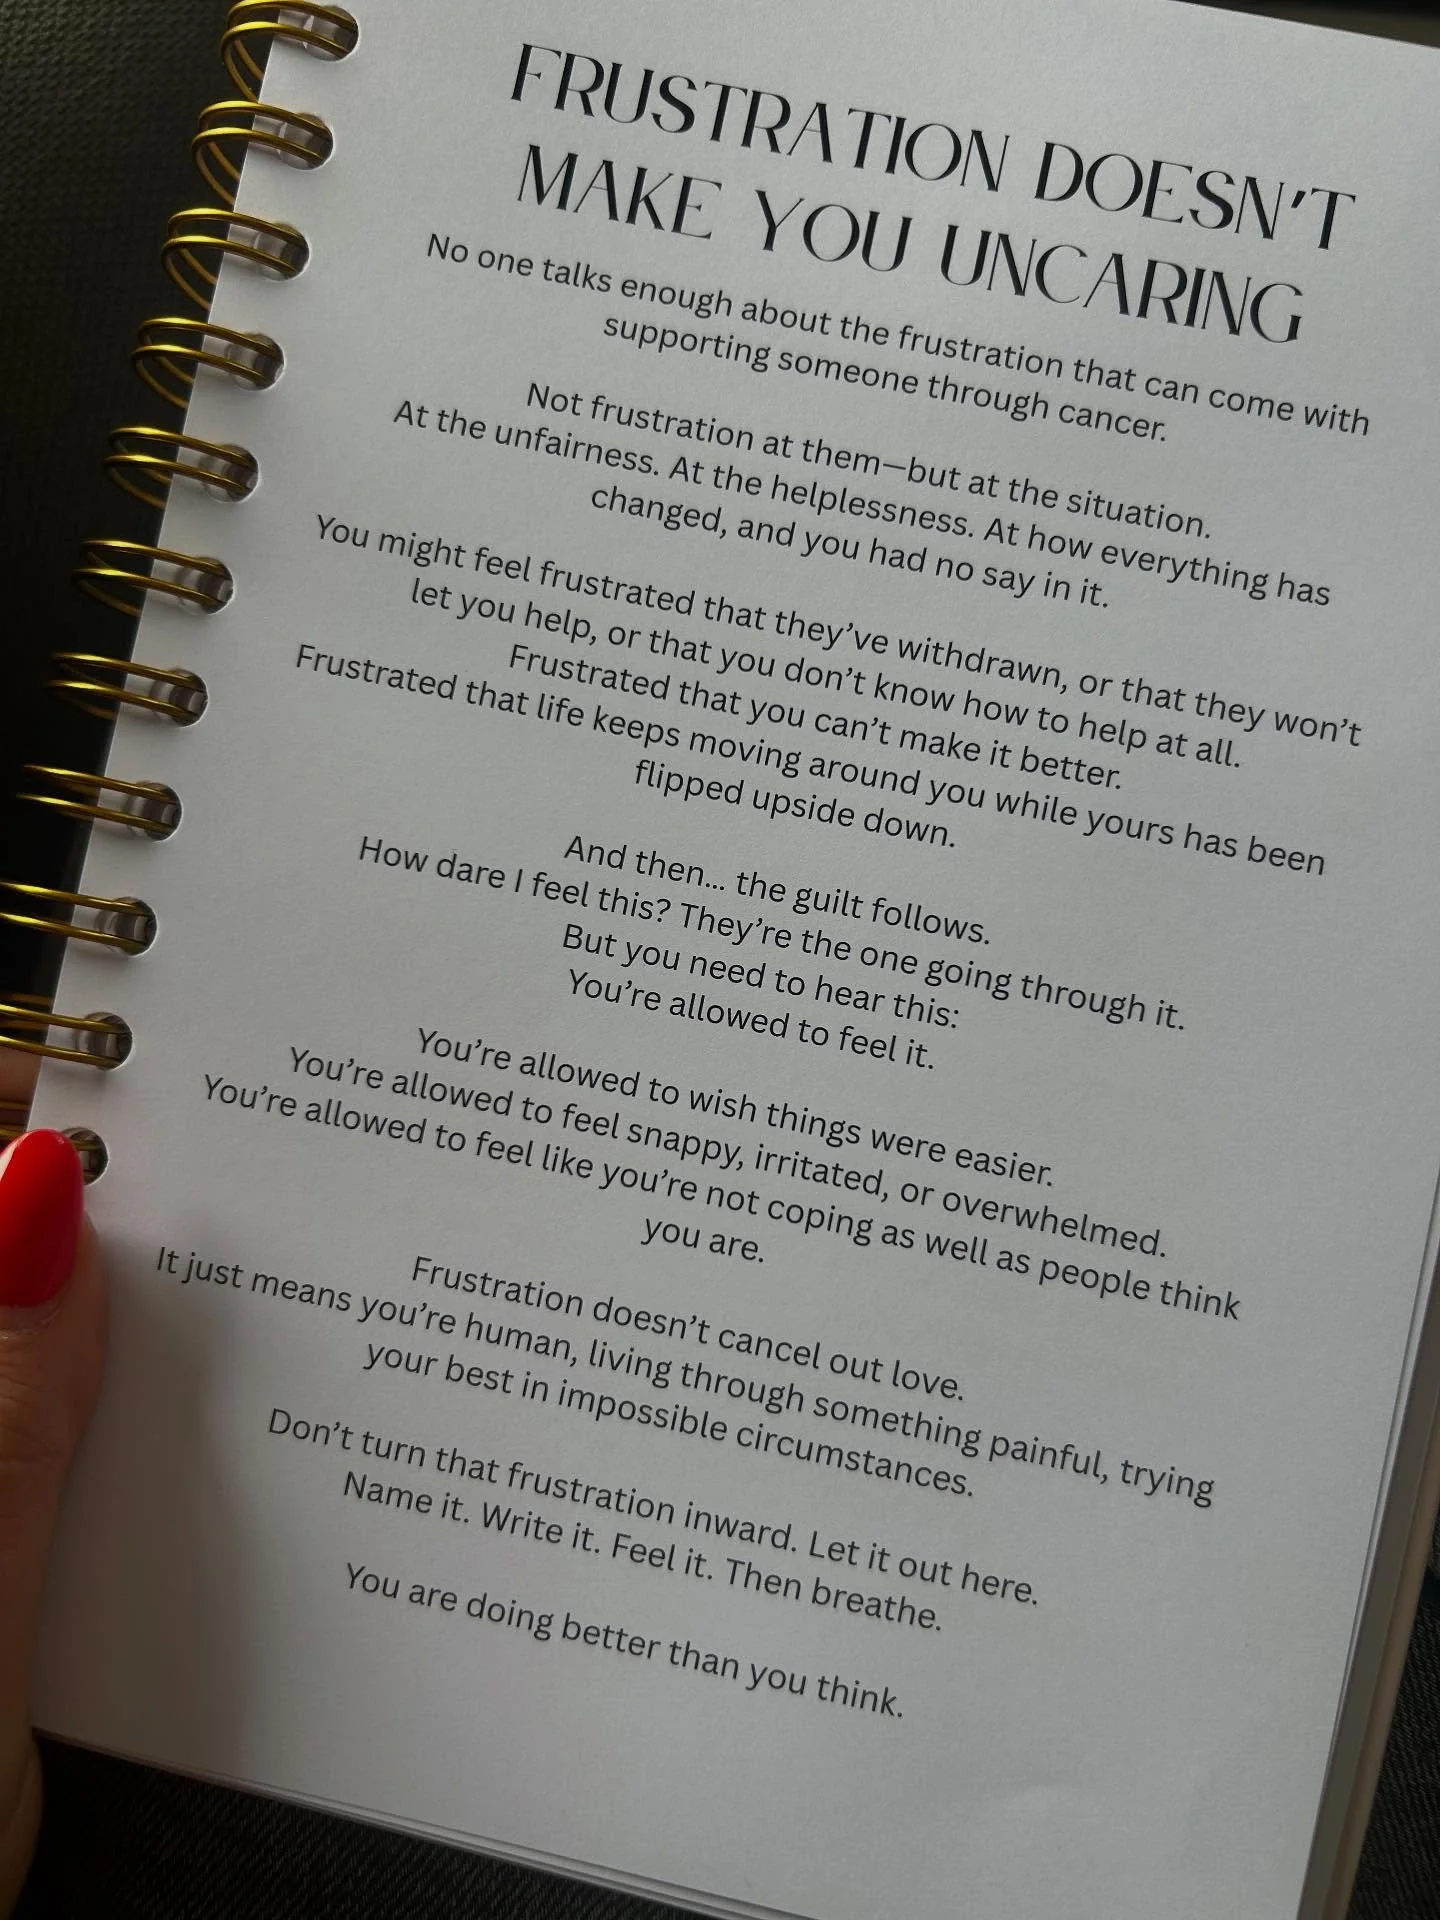 FRUSTRATION DOESN'T
MAKE YOU UNCARING
No one talks enough about the frustration that can come with
supporting someone through cancer.
Not frustration at them—but at the situation.
At the unfairness. At the helplessness. At how everything has
changed, and you had no say in it.
You might feel frustrated that they've withdrawn, or that they won't
let you help, or that you don't know how to help at all.
Frustrated that you can't make it better.
Frustrated that life keeps moving around you while yours has been
flipped upside down.
And then... the guilt follows.
How dare I feel this? They're the one going through it.
But you need to hear this:
You're allowed to feel it.
You're allowed to wish things were easier.
You're allowed to feel snappy, irritated, or overwhelmed.
You're allowed to feel like you're not coping as well as people think
you are.
Frustration doesn't cancel out love.
It just means you're human, living through something painful, trying
your best in impossible circumstances.
Don't turn that frustration inward. Let it out here.
Name it. Write it. Feel it. Then breathe.
You are doing better than you think.